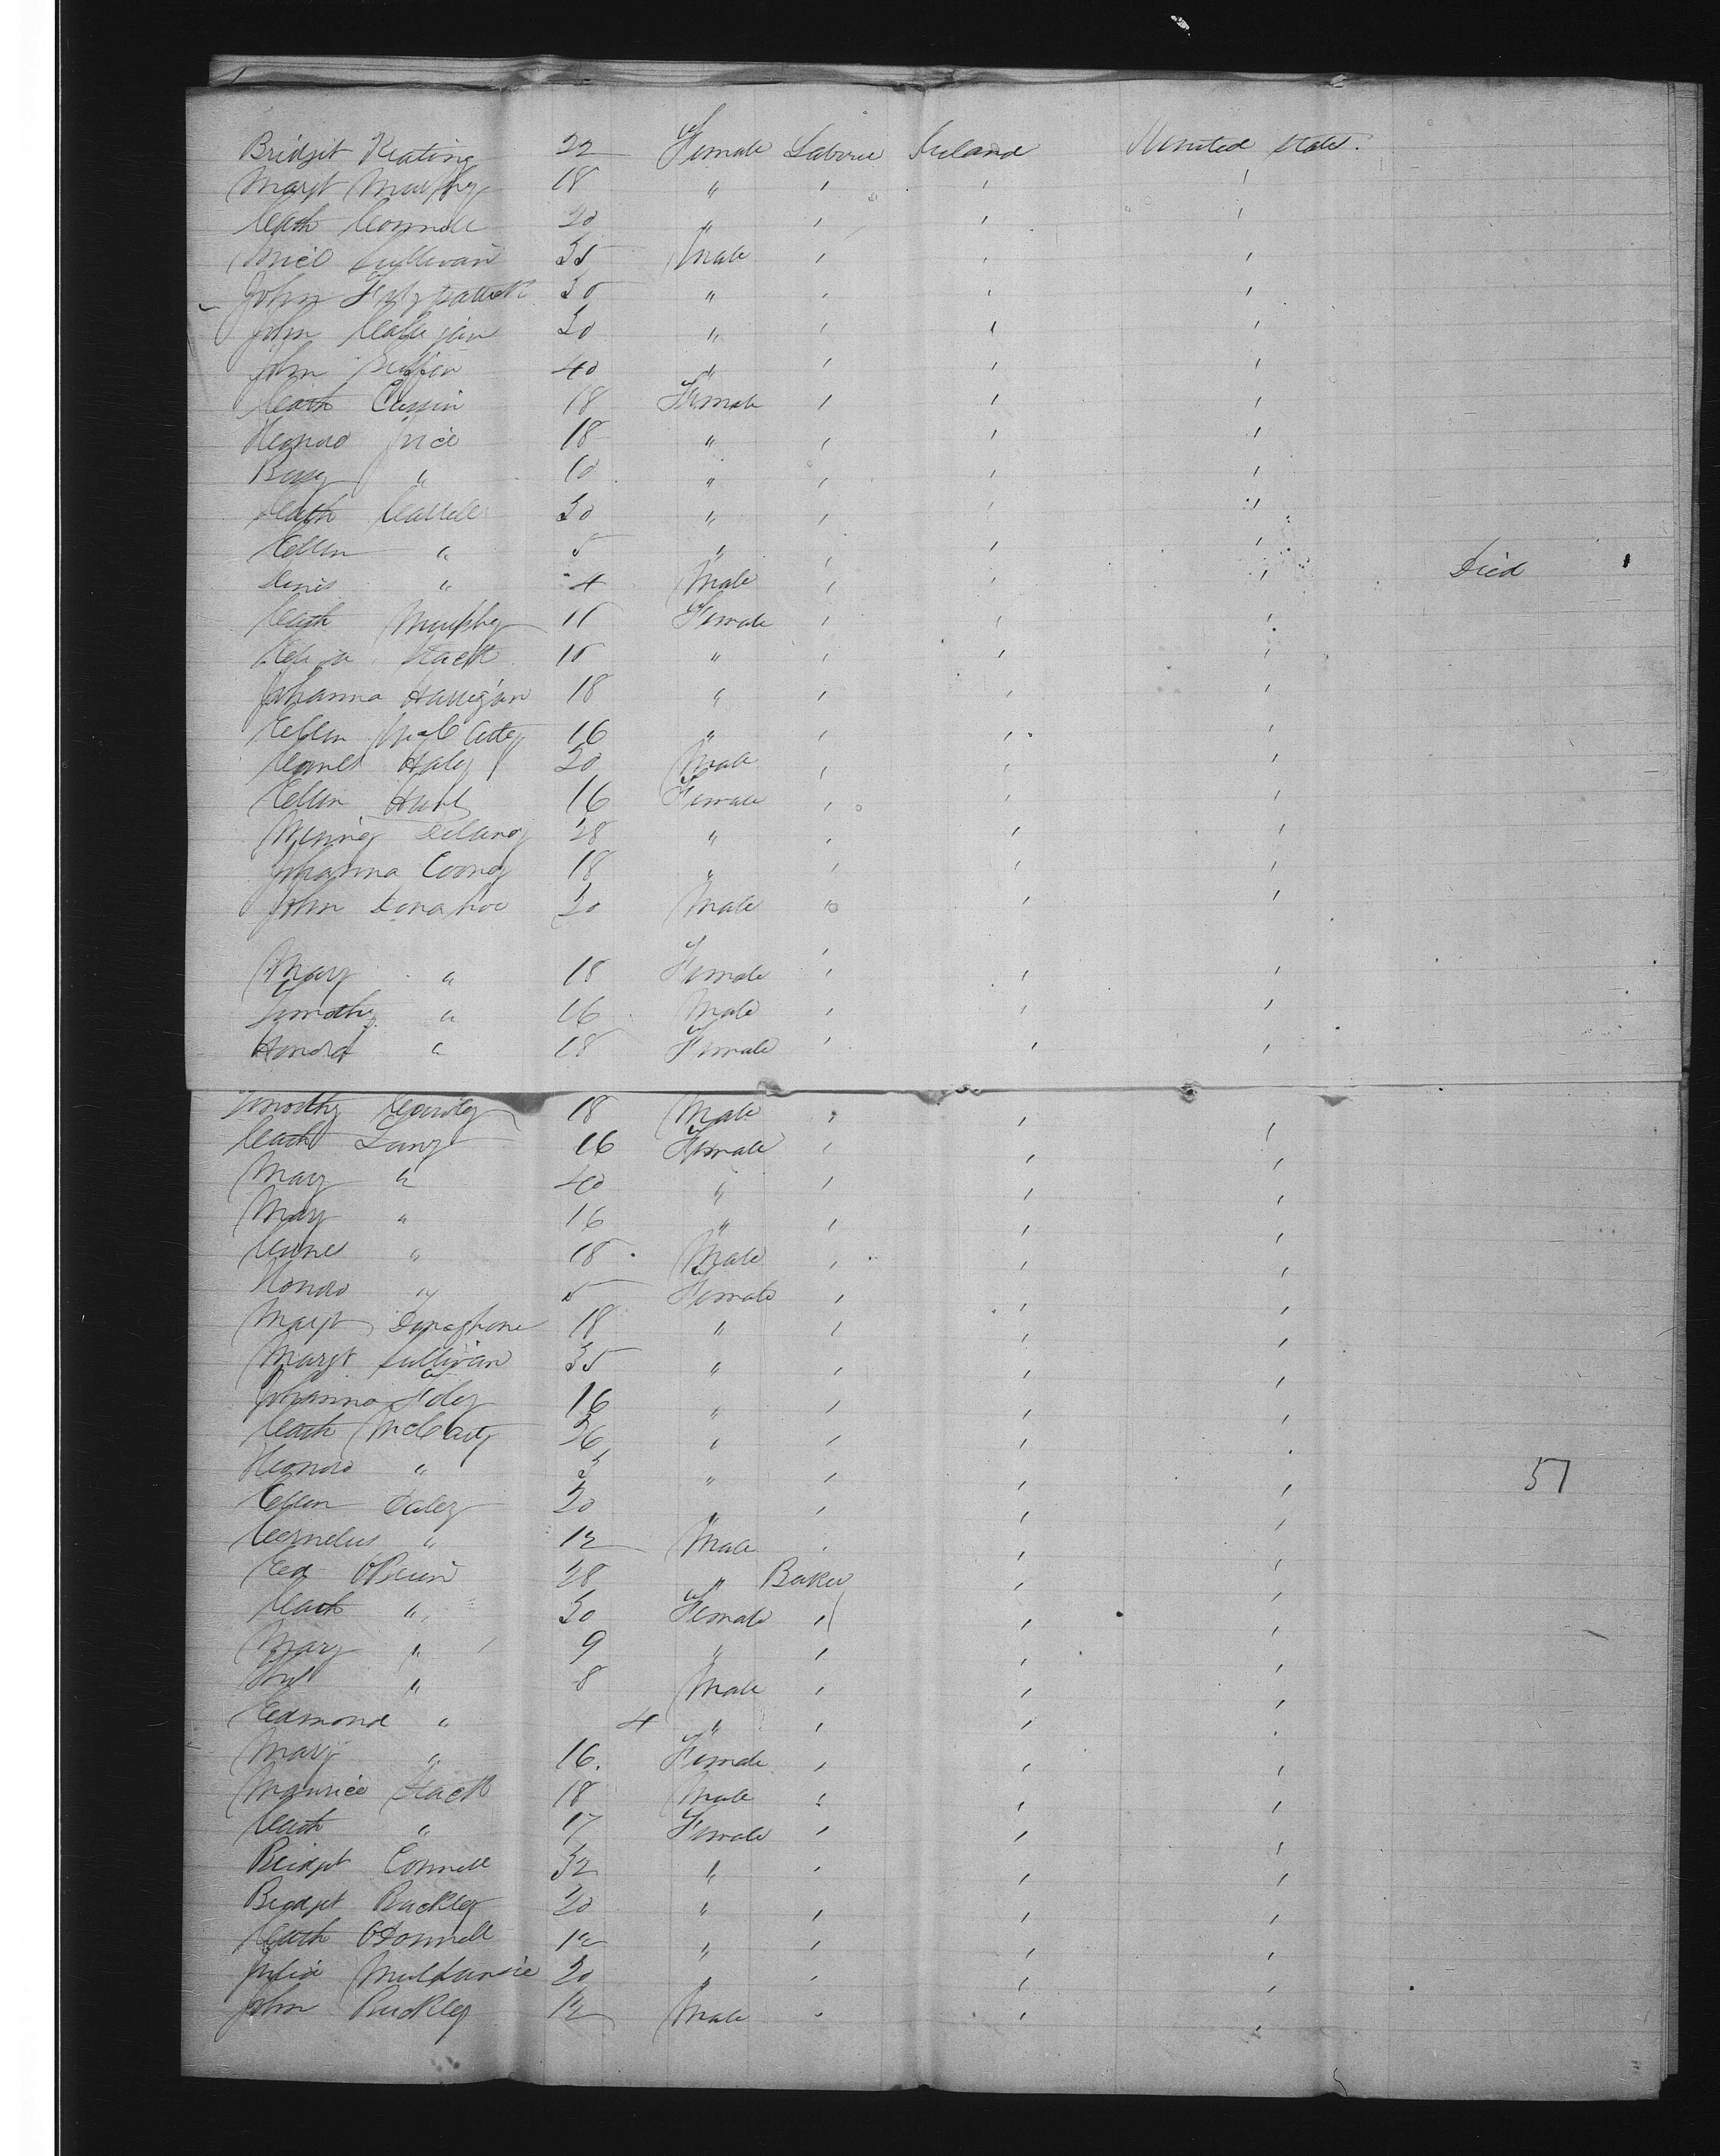 Bridgit Keating 22 Female Laborer Ireland United States
Margt Murphy 18 " " " "
Cath Connell 20 " " " "
Micl Sullivan 35 Male " " "
John Fitzpatrick 30 " " " "
John Calligan 30 " " " "
John Griffin 40 " " " "
Cath Cussin 18 Female " " "
Honora Price 18 " " " "
Bessy " 10 " " " "
Cath Carroll 30 " " " "
Ellen " 5 " " " "
Denis " 4 Male " " " Died
Cath Murphy 11 Female " " "
Stack 10 " " " "
Johanna Harrigan 18 " " " "
Ellen McCarty 16 " " " "
Cornel Haley 20 Male " " "
Ellen Hart 16 Female " " "
Delany 28 " " " "
Johanna Cooney 18 " " " "
John Donahoe 20 Male " " "
Mary " 18 Female " " "
Timothy " 16 Male " " "
Honora " 18 Female " " "
Timothy 18 Male " " "
Cath Lany 16 Female " " "
Mary " 40 " " " "
Mary " 16 " " " "
" 18 Male " " "
Honora " 5 Female " " "
Margt Donaghoue 18 " " " "
Margt Sullivan 35 " " " "
Johanna Foley 16 " " " "
Cath McCarty 36 " " " "
Honora " 3 " " " " 57
Ellen Daley 20 " " " "
Cornelius " 12 Male " " "
Ed OBrien 28 " Baker " "
Cath " 30 Female " " "
Mary " 9 " " " "
" 8 Male " " "
Edmond " 4 " " " "
Mary " 16 Female " " "
Maurice Stack 18 Male " " "
Cath " 17 Female " " "
Bridget Connell 32 " " " "
Bridget Buckley 20 " " " "
Cath ODonnell 12 " " " "
Julia 20 " " " "
John Buckley 12 Male " " "